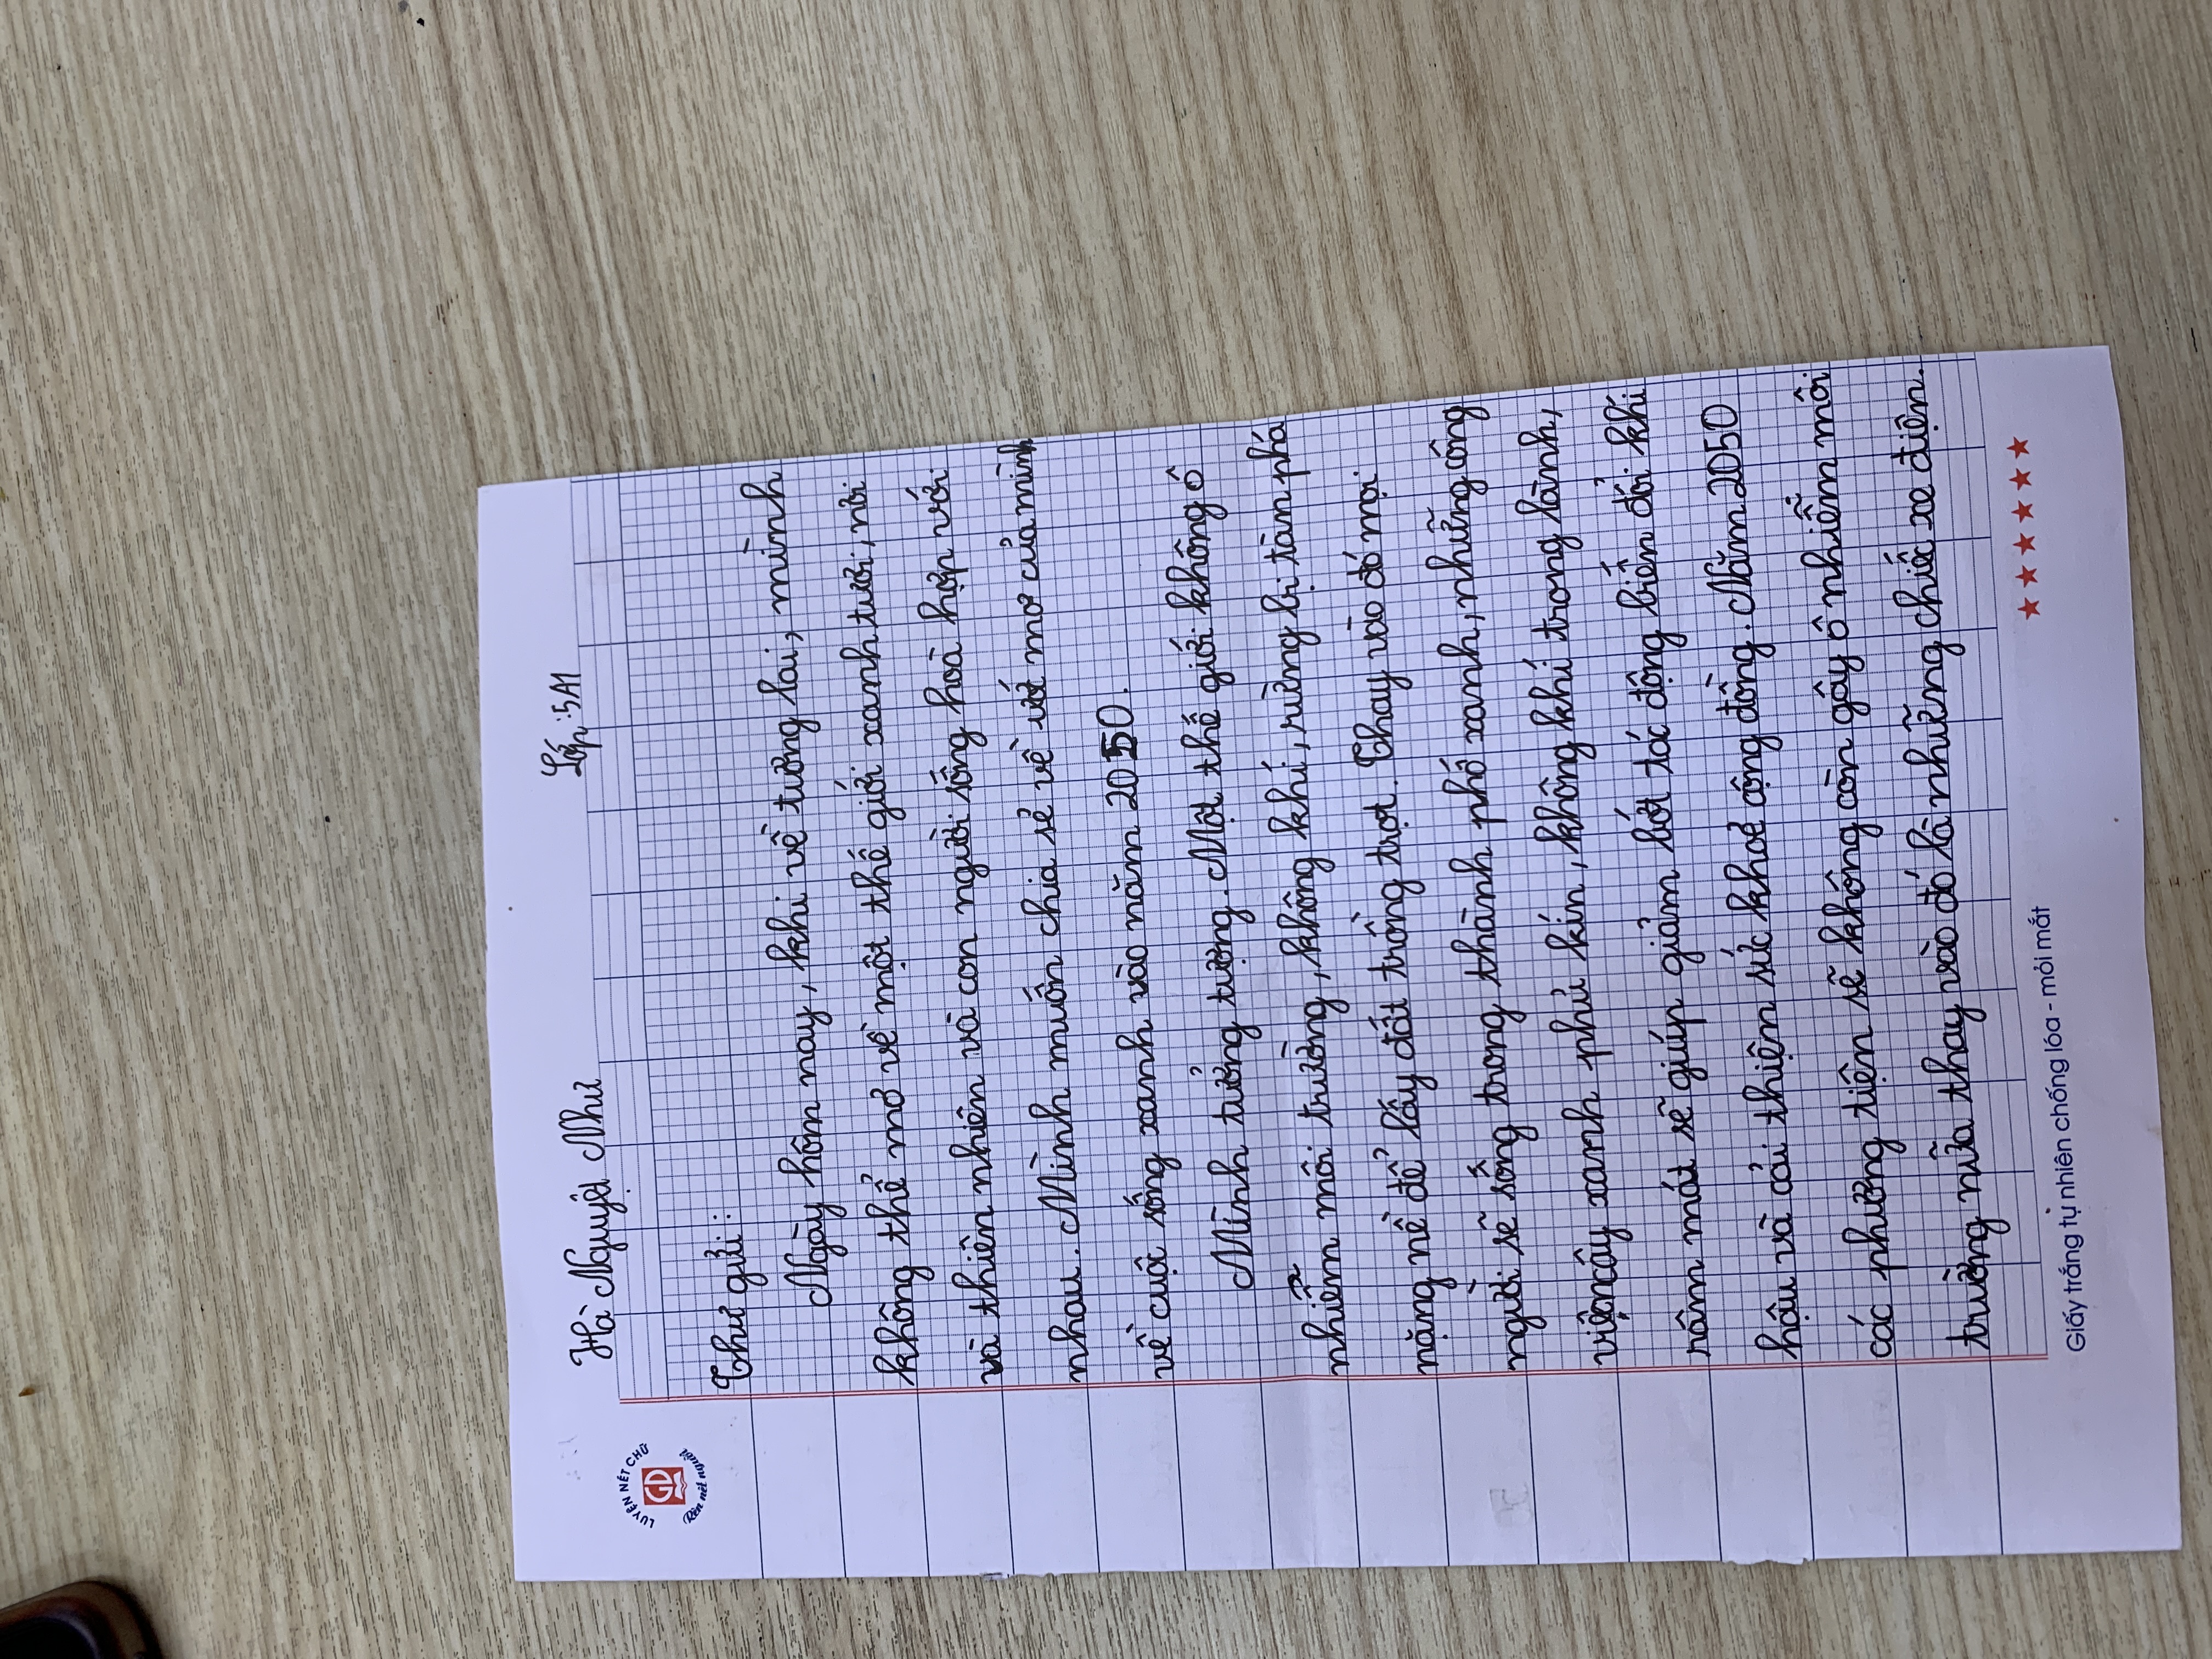 Hà Nguyệt Như Lớp: 5A1
LUYỆN NÉT CHỮ
GD
Rèn nết người
Thư gửi:
Ngày hôm nay, khi về tương lai, mình
không thể mơ về một thế giới xanh tươi, nơi
và thiên nhiên và con người sống hoà hợp với
nhau. Mình muốn chia sẻ về ước mơ của mình
về cuộc sống xanh vào năm 2050.
Mình tưởng tượng. Một thế giới không ô
nhiễm môi trường, không khí, rừng bị tàn phá
nặng nề để lấy đất trồng trọt. Thay vào đó mọi
người sẽ sống trong thành phố xanh, những công
viên cây xanh phủ kín, không khí trong lành,
râm mát sẽ giúp giảm bớt tác động biến đổi khí
hậu và cải thiện sức khoẻ cộng đồng. Năm 2050
các phương tiện sẽ không còn gây ô nhiễm môi
trường nữa thay vào đó là những chiếc xe điện.
Giấy trắng tự nhiên chống lóa - mỏi mắt